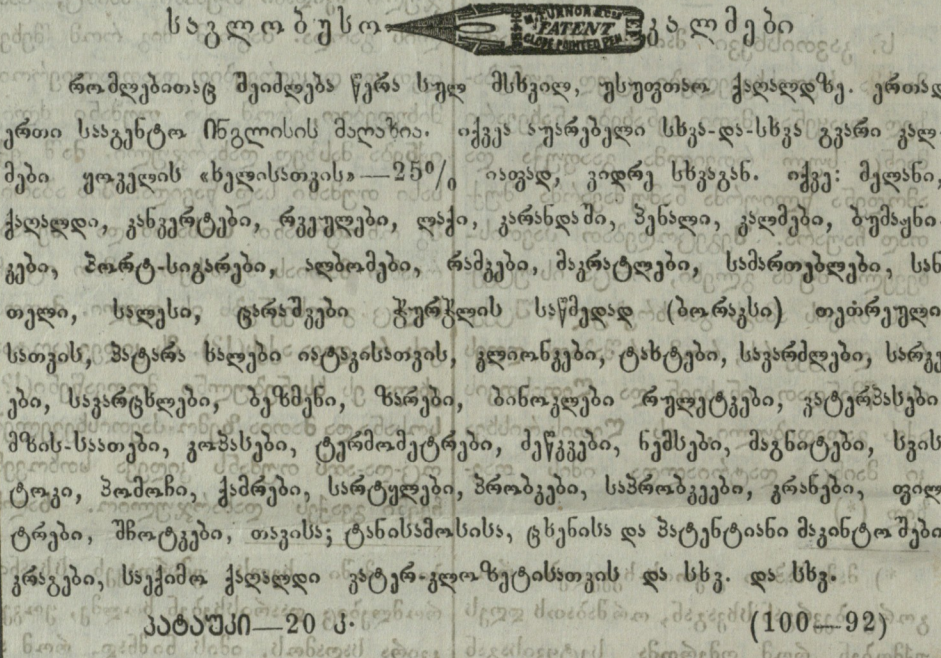 საგლობუსო PATENT GLOBE POINTED PEN კალმები
რომლებითაც შეიძლება წერა სულ მსხვილ, უსუფთაო ქაღალდზე. ერთად
ერთი სააგენტო ინგლისის მაღაზია. იქვეა აუარებელი სხვა-და-სხვა გვარი კალ
მები ყოველის «ხელისათვის»—25% იაფად, ვიდრე სხვაგან. იქვე: მელანი,
ქაღალდი, კანვერტები, რვეულები, ლაქი, კარანდაში, პენალი, კალმები, ბუმაჟნი
კები, პორტ-სიგარები, ალბომები, რამკები, მაკრატლები, სამართებლები, სან
თელი, სალესი, ცარაშვები ჭურჭლის საწმედად (ბორაკსი) თეთრეული
სათვის, პატარა ხალები იატაკისათვის, კლიონკები, ტახტები, სავარძლები, სარკე
ები, სავარცხლები, ბეზმენი, ზარები, ბინოკლები რულეტკები, ვატერპასები
მზის-საათები, კოპასები, ტერმომეტრები, ძეწკვები, ნემსები, მაგნიტები, სვის
ტოკი, პომოჩი, ქამრები, სარტყლები, პრობკები, საპრობკეები, კრანები, ფილ
ტრები, შჩოტკები, თავისა; ტანისამოსისა, ცხენისა და პატენტიანი მაკინტოშები
კრაგები, საექიმო ქაღალდი ვატერ-კლოზეტისათვის და სხვ. და სხვ.
პატაუკი—20 კ. (100—92)